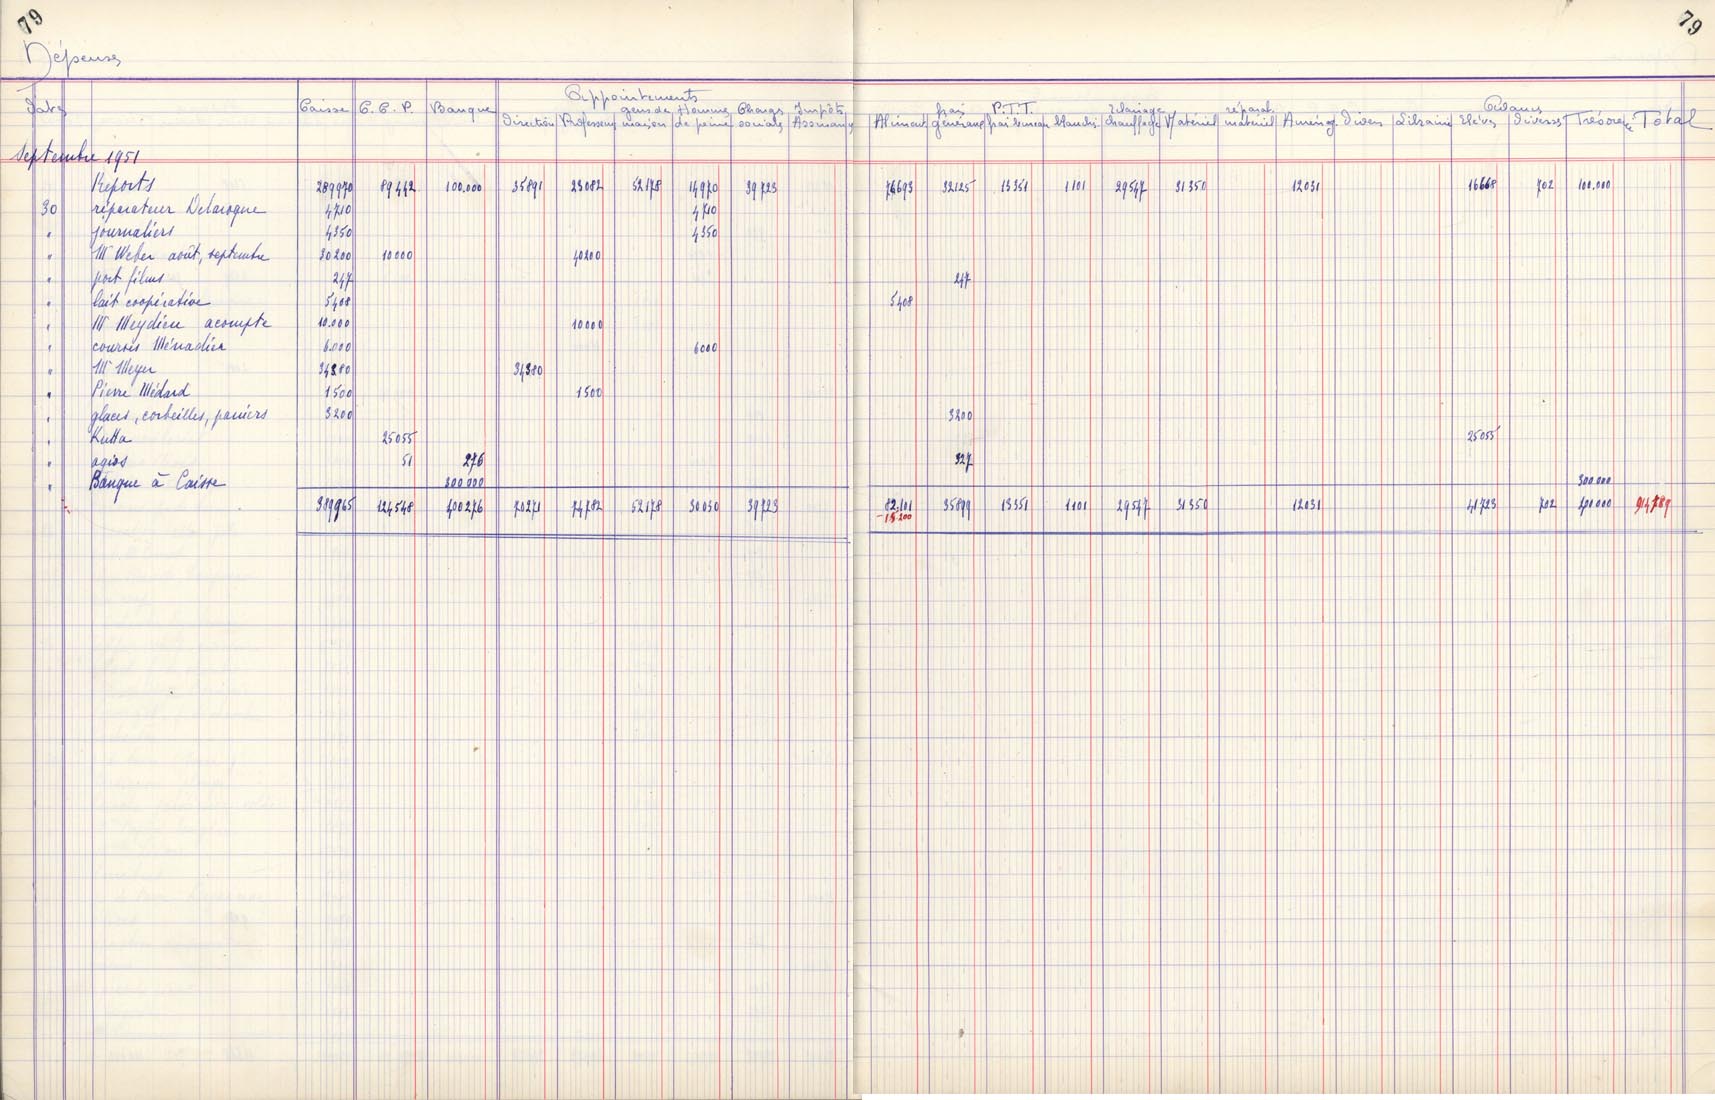 79
79
Dépenses
Dates Caisse C.C.P. Banque Appointements Direction Professeurs gens de maison Homme de peine Charges sociales Impôts Assurances Aliment frais généraux P.T.T. frais bureau blanchis. Eclairage chauffage Matériel réparat. matériel Aménag. Divers Librairie Avances Elèves diverses Trésorerie Total
Septembre 1951
Reports 289970 89442 100.000 35891 23082 52178 14970 39723 76693 32125 13351 1101 29547 31350 12031 16668 702 100.000
30 réparateur Delarogue 4710 4710
" journaliers 4350 4350
" Mr Weber août, septembre 30200 10000 40200
" port films 247 247
" lait coopérative 5408 5408
" Mr Meydieu acompte 10.000 10000
" courses Ménadier 6.000 6000
" Mr Meyer 34380 34380
" Pierre Médard 1500 1500
" glaces, corbeilles, paniers 3200 3200
" Kutta 25055 25055
" agios 51 276 327
" Banque à Caisse 300 000 300.000
389965 124548 400276 70271 74782 52178 30030 39723 82.101 35899 13351 1101 29547 31350 12031 41723 702 400.000 914789
-15.200